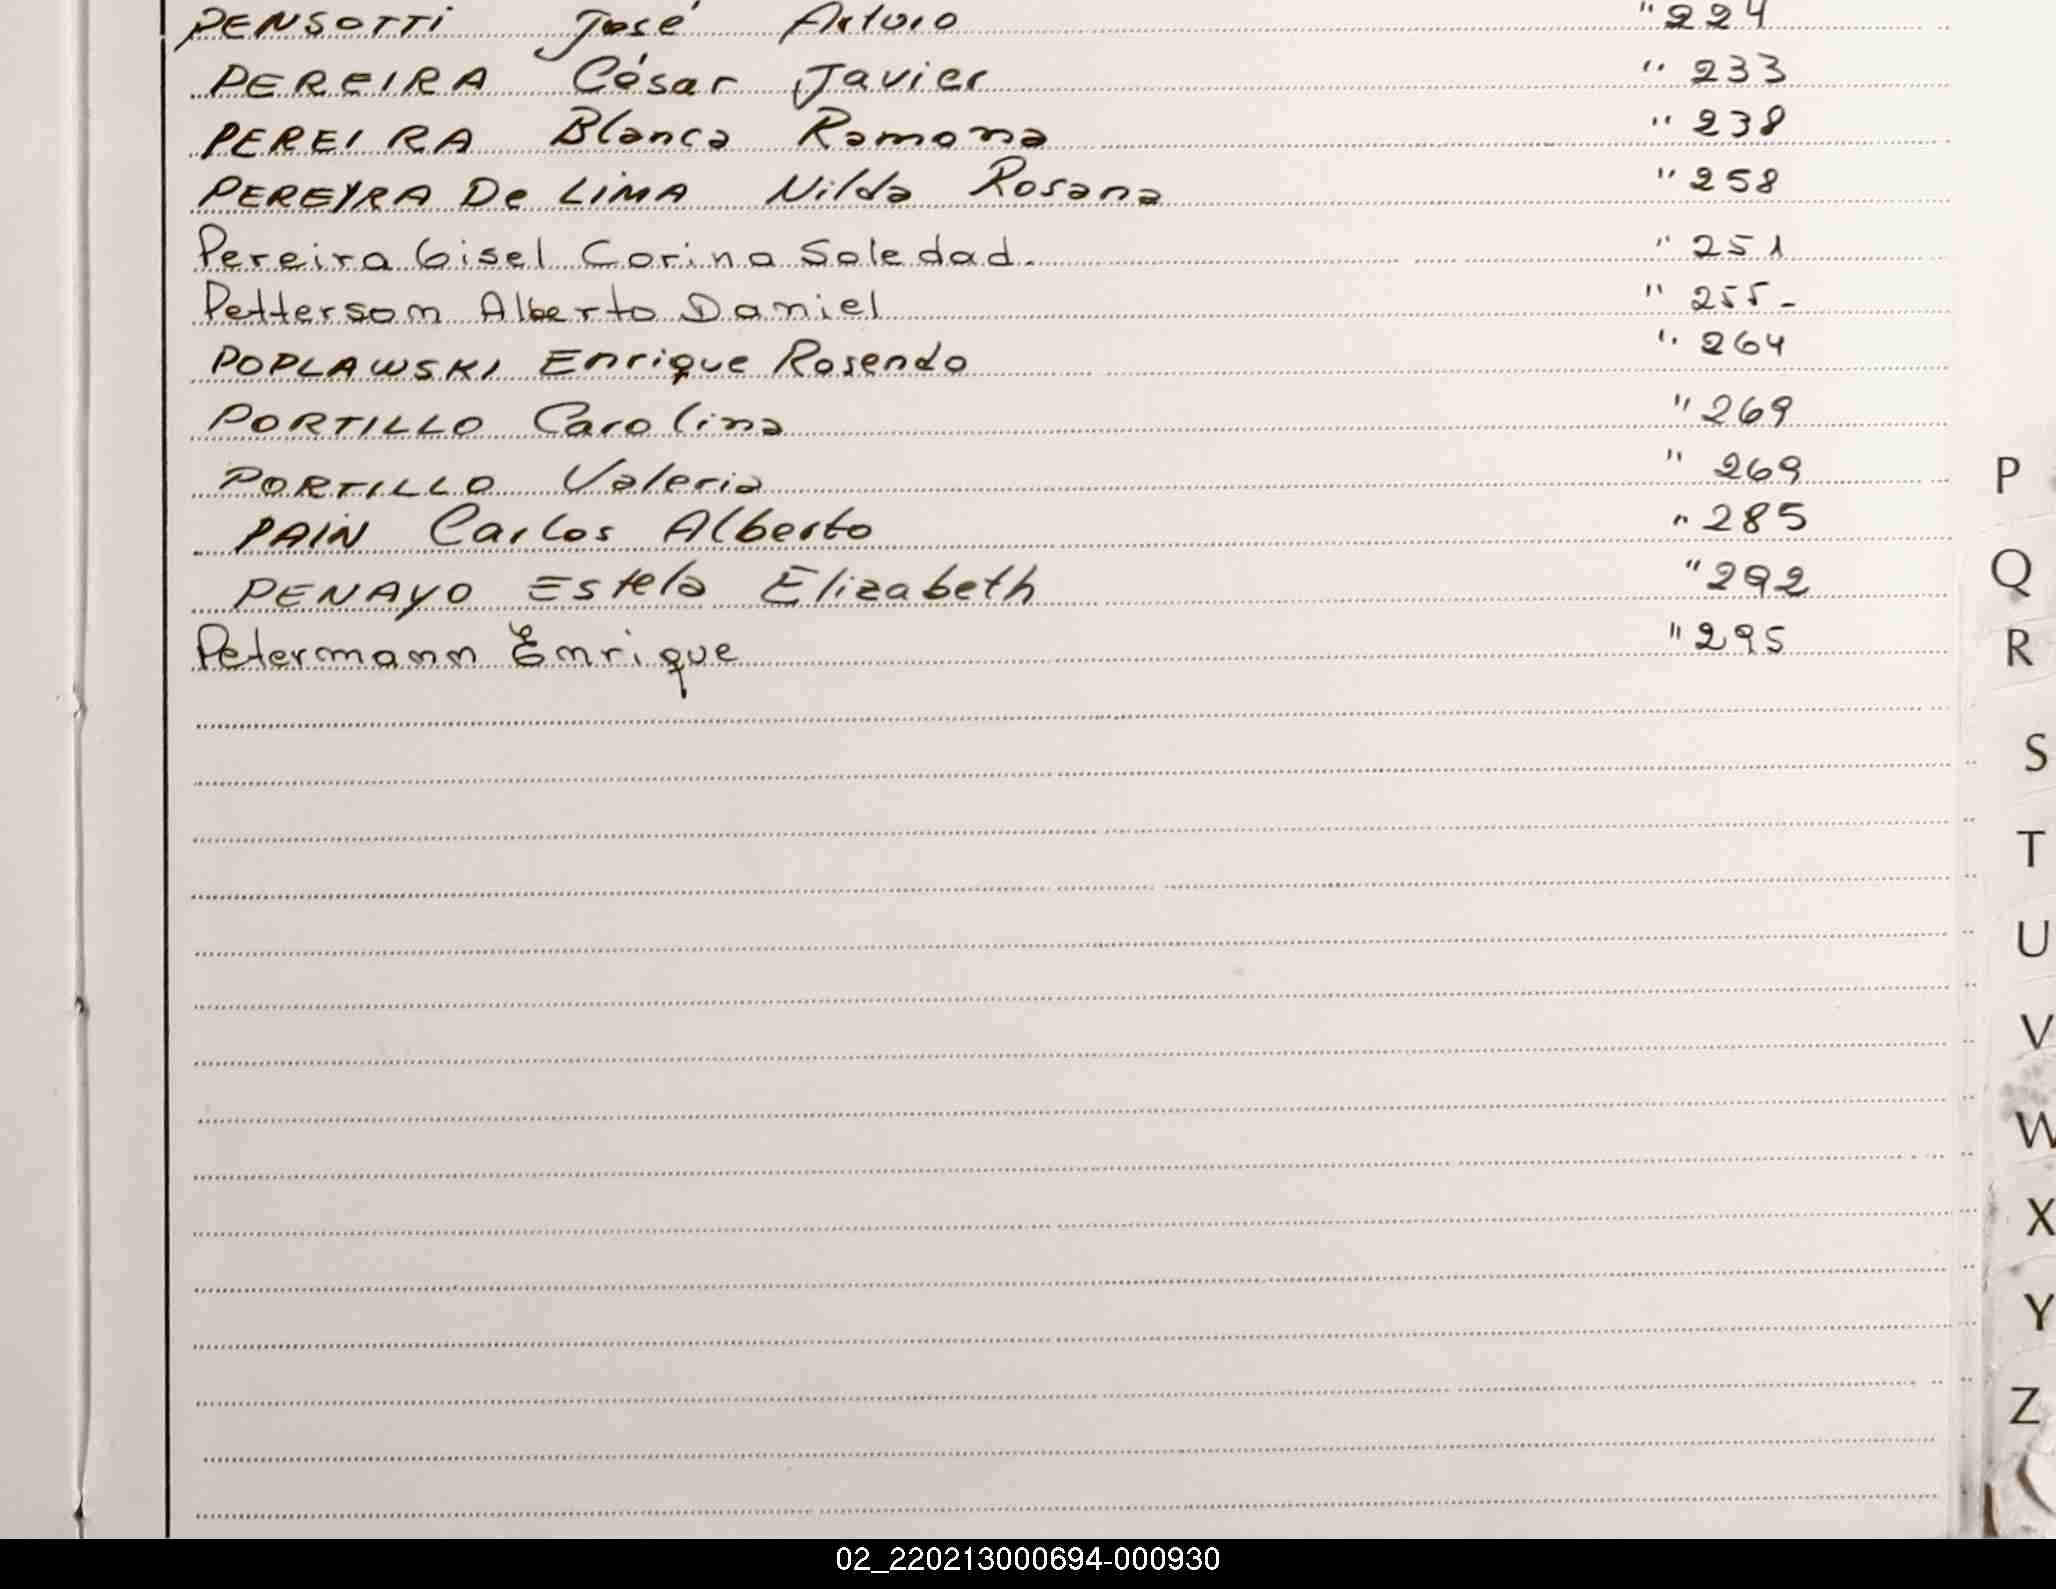 PENSOTTI José Arturo " 224
PEREIRA César Javier " 233
PEREIRA Blanca Ramona " 238
PEREYRA De LIMA Nilda Rosana " 258
Pereira Gisel Corina Soledad. " 251
Petterson Alberto Daniel " 255-
POPLAWSKI Enrique Rosendo " 264
PORTILLO Carolina " 269
PORTILLO Valeria " 269
PAIN Carlos Alberto " 285
PENAYO Estela Elizabeth " 292
Petermann Enrique " 295
P
Q
R
S
T
U
V
W
X
Y
Z
02_220213000694-000930